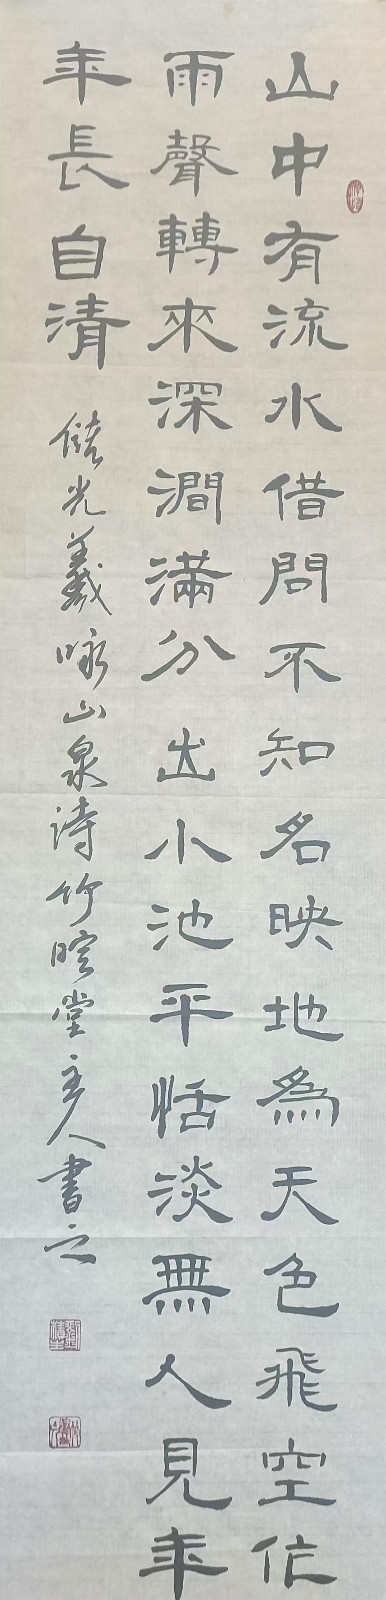 山中有流水借問不知名映地為天色飛空作
雨聲轉來深澗滿分出小池平恬淡無人見年
年長自清
儲光羲咏山泉诗竹暄堂主人書之